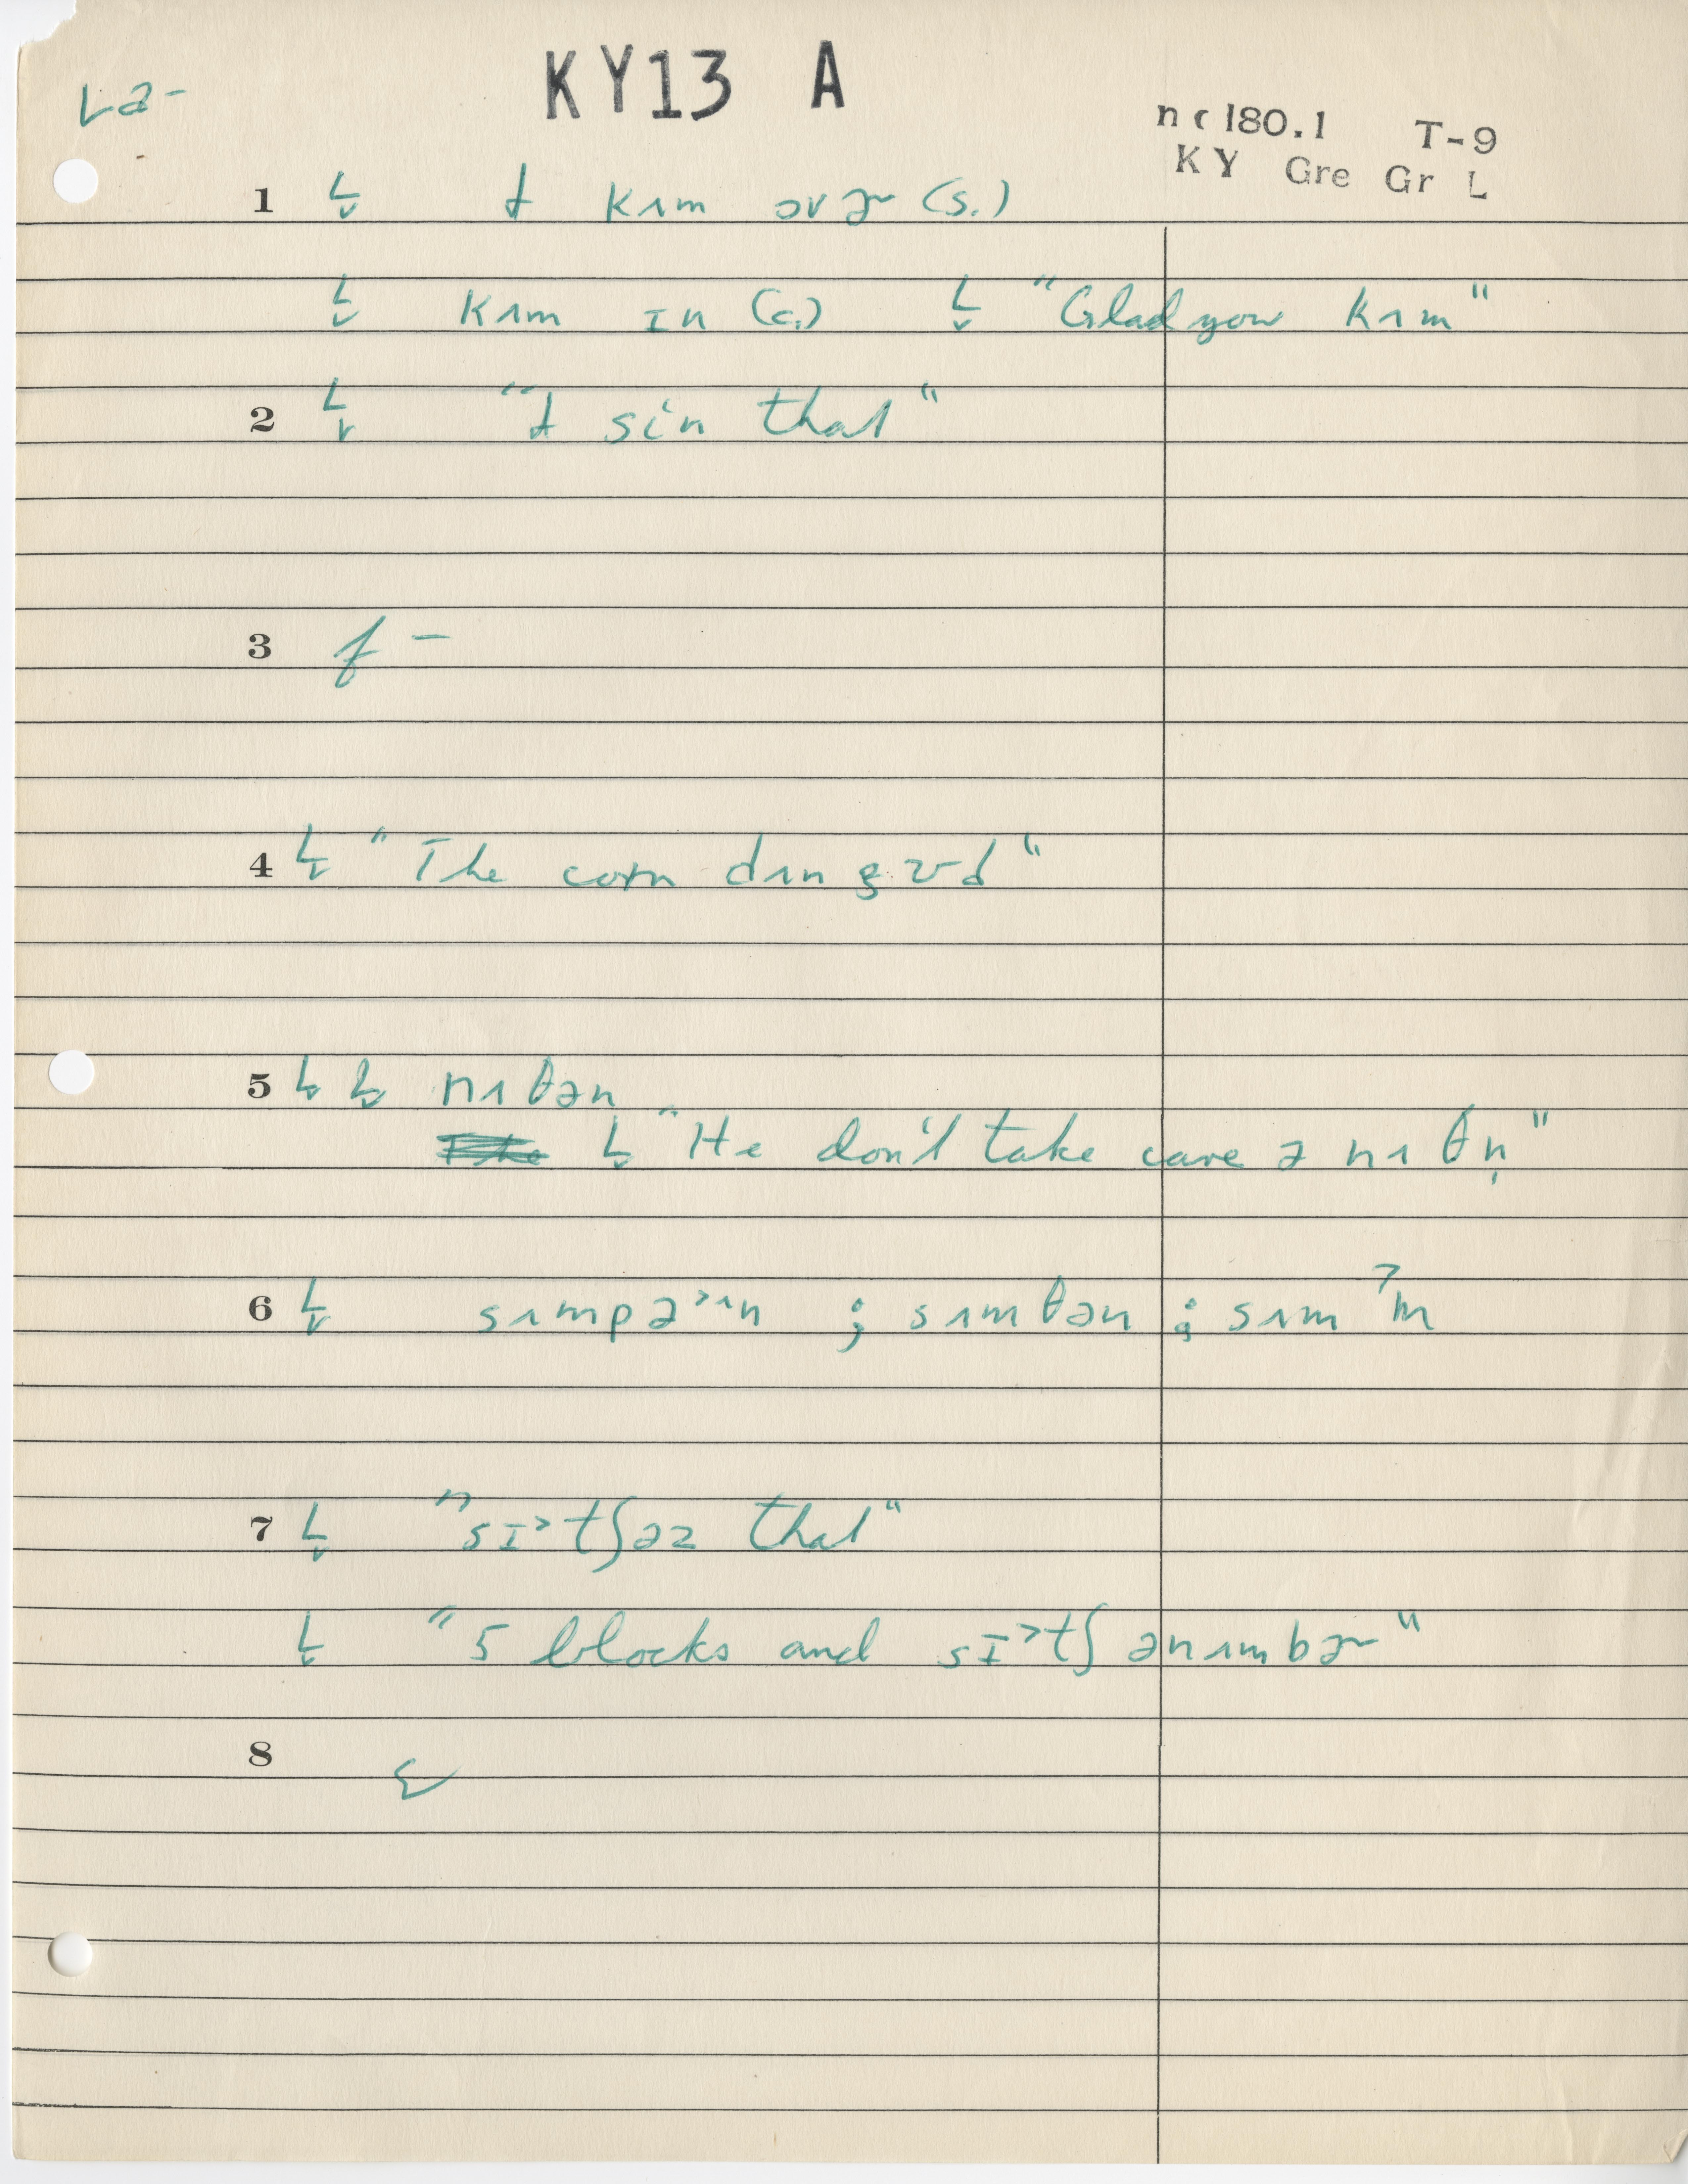 La-
KY13 A
nc180.1 T-9
KY Gre Gr L
1 kʌm ovɚ (s.)
kʌm ɪn (c.) "Glad you kʌm"
2 sin that"
3 f -
4 "The corn dʌn
5 nʌθən
"He don't take care ə nʌθn̩"
6 ; sʌmθən ; sʌm ʔm
7 "sɪ˃tʃəz that"
"5 blocks and sɪ˃tʃ ənʌmbɚ"
8